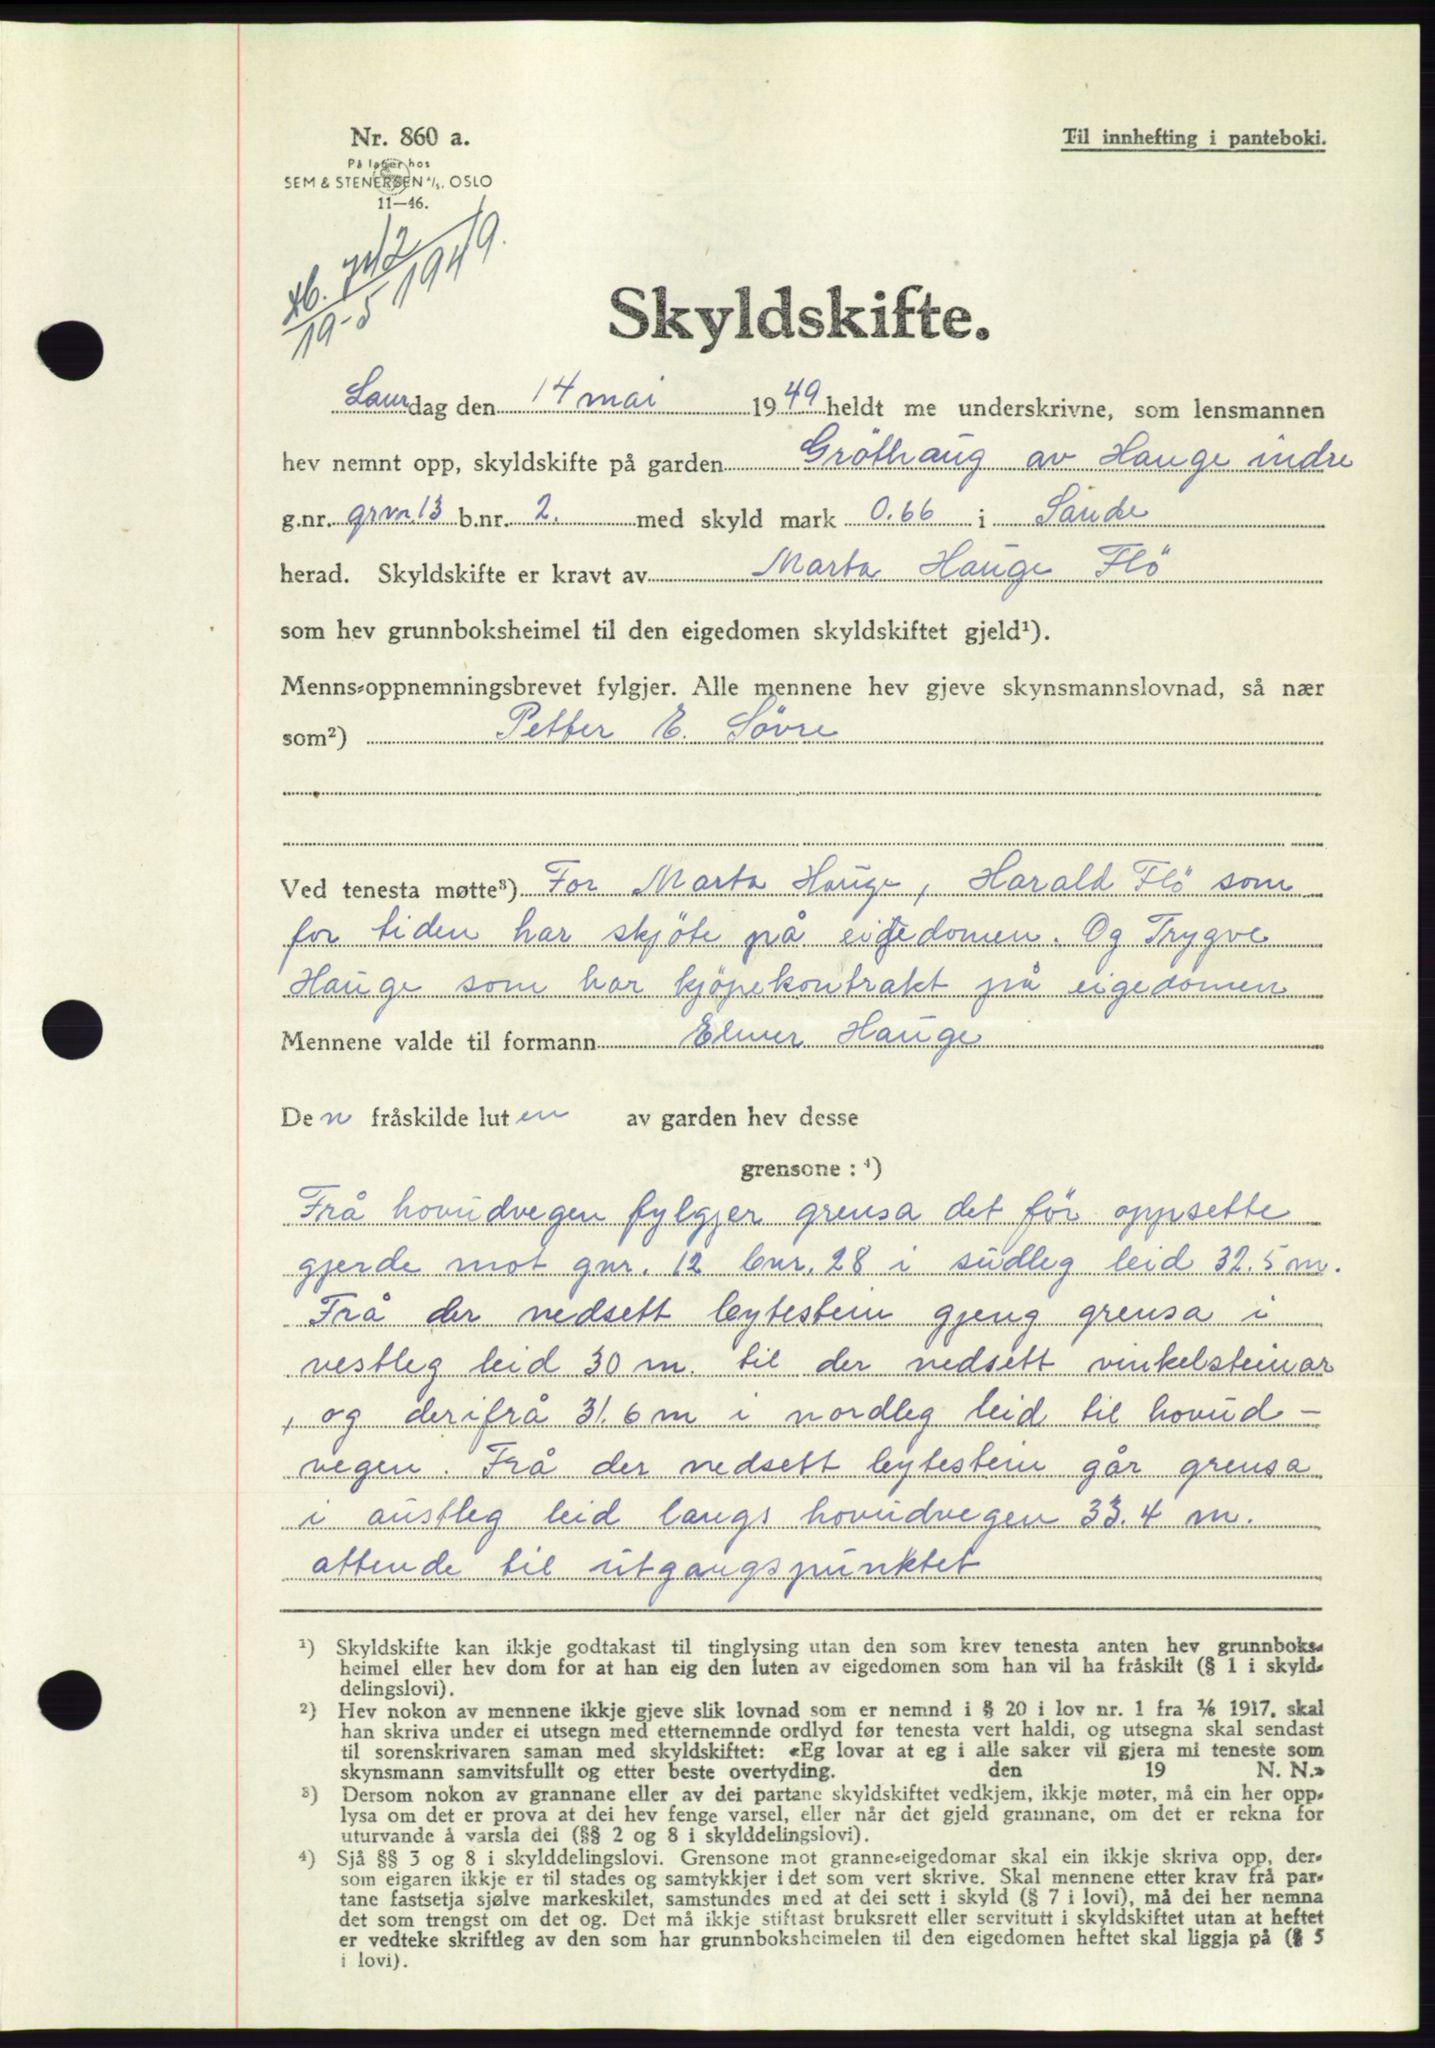 Nr. 860 a.
Til innhefting i panteboki.
På lager hos
SEM & STENERSEN A/S, OSLO
11—46.
19-5 1949.
Skyldskifte.
Laurdag den 14 mai 1949 heldt me underskrivne, som lensmannen
hev nemnt opp, skyldskifte på garden Gröthaug av Hauge indre
g.nr. grnr. 13 b.nr. 2. med skyld mark 0.66 i Sande
herad. Skyldskifte er kravt av Marta Hauge Flö
som hev grunnboksheimel til den eigedomen skyldskiftet gjeld¹).
Menns-oppnemningsbrevet fylgjer. Alle mennene hev gjeve skynsmannslovnad, så nær
som²) Petter E. Sövre
Ved tenesta møtte³) For Marta Hauge, Harald Flö som
for tiden har skjöte på eigedomen. Og Trygve
Hauge som har kjöpekontrakt på eigedomen
Mennene valde til formann Elmer Hauge
Den fråskilde luten av garden hev desse
grensone : ⁴)
Frå hovudvegen fylgjer grensa det för oppsette
gjerde mot gnr. 12 bnr. 28 i sudleg leid 32.5 m.
Frå der nedsett bytestein gjeng grensa i
vestleg leid 30 m. til der nedsett vinkelsteinar
, og derifrå 31.6 m i nordleg leid til hovud-
vegen. Frå der nedsett bytestein går grensa
i austleg leid langs hovudvegen 33.4 m.
attende til utgangspunktet
¹) Skyldskifte kan ikkje godtakast til tinglysing utan den som krev tenesta anten hev grunnboks-
heimel eller hev dom for at han eig den luten av eigedomen som han vil ha fråskilt (§ 1 i skyld-
delingslovi).
²) Hev nokon av mennene ikkje gjeve slik lovnad som er nemnd i § 20 i lov nr. 1 fra 1/6 1917, skal
han skriva under ei utsegn med etternemnde ordlyd før tenesta vert haldi, og utsegna skal sendast
til sorenskrivaren saman med skyldskiftet: «Eg lovar at eg i alle saker vil gjera mi teneste som
skynsmann samvitsfullt og etter beste overtyding. den 19 N. N.»
³) Dersom nokon av grannane eller av dei partane skyldskiftet vedkjem, ikkje møter, må ein her opp-
lysa om det er prova at dei hev fenge varsel, eller når det gjeld grannane, om det er rekna for
uturvande å varsla dei (§§ 2 og 8 i skylddelingslovi).
⁴) Sjå §§ 3 og 8 i skylddelingslovi. Grensone mot granne-eigedomar skal ein ikkje skriva opp, der-
som eigaren ikkje er til stades og samtykkjer i det som vert skrive. Skal mennene etter krav frå par-
tane fastsetja sjølve markeskilet, samstundes med at dei sett i skyld (§ 7 i lovi), må dei her nemna
det som trengst om det og. Det må ikkje stiftast bruksrett eller servitutt i skyldskiftet utan at heftet
er vedteke skriftleg av den som har grunnboksheimelen til den eigedomen heftet skal liggja på (§ 5
i lovi).